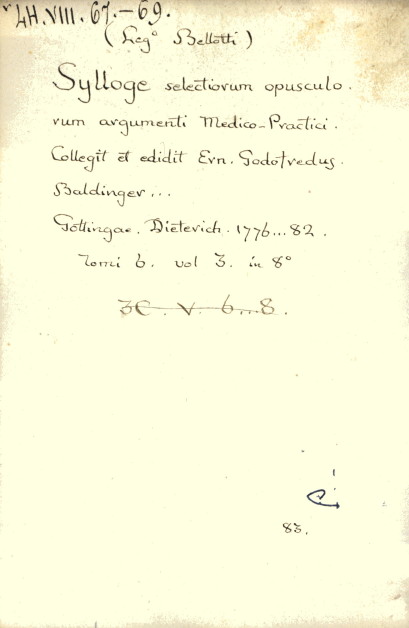 LH.VIII. 67.-69.
(Leg° Bellotti)
Sylloge selectiorum opusculo.
rum argumenti Medico-Practici.
Collegit et edidit Ern. Godofredus.
Baldinger...
Gottingae. Dieterich. 1776...82.
Tomi 6. vol 3. in 8°
3C. V. 6...8.
83.